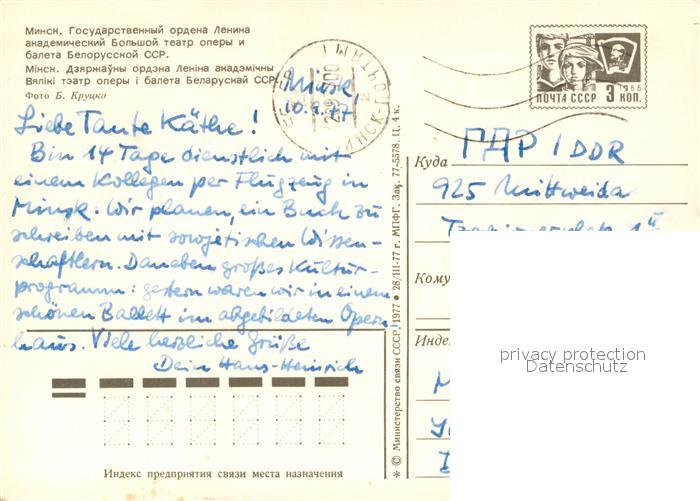 Минск. Государственный ордена Ленина
академический Большой театр оперы и
балета Белорусской ССР.
Мінск. Дзяржаўны ордэна Леніна акадэмічны
Вялікі тэатр оперы і балета Беларускай ССР.
Фото Б. Круцко
Minsk,
10.9.77
Liebe Tante Käthe!
Bin 14 Tage dienstlich mit
einem Kollegen per Flugzeug in
Minsk. Wir planen, ein Buch zu
schreiben mit sowjetischen Wissen-
schaftlern. Daneben großes Kultur-
programm: gestern waren wir in einem
schönen Ballett im abgebildeten Opern-
haus. Viele herzliche Grüße
Dein Hans-Heinrich
Индекс предприятия связи места назначения
* © Министерство связи СССР, 1977 • 28/III-77 г. МПФГ. Зак. 77-5578. Ц. 4 к.
ПОЧТА СССР 3 КОП.
1966
МИНСК
Куда ГДР / DDR
925 Mittweida
Кому
Индек
privacy protection
Datenschutz